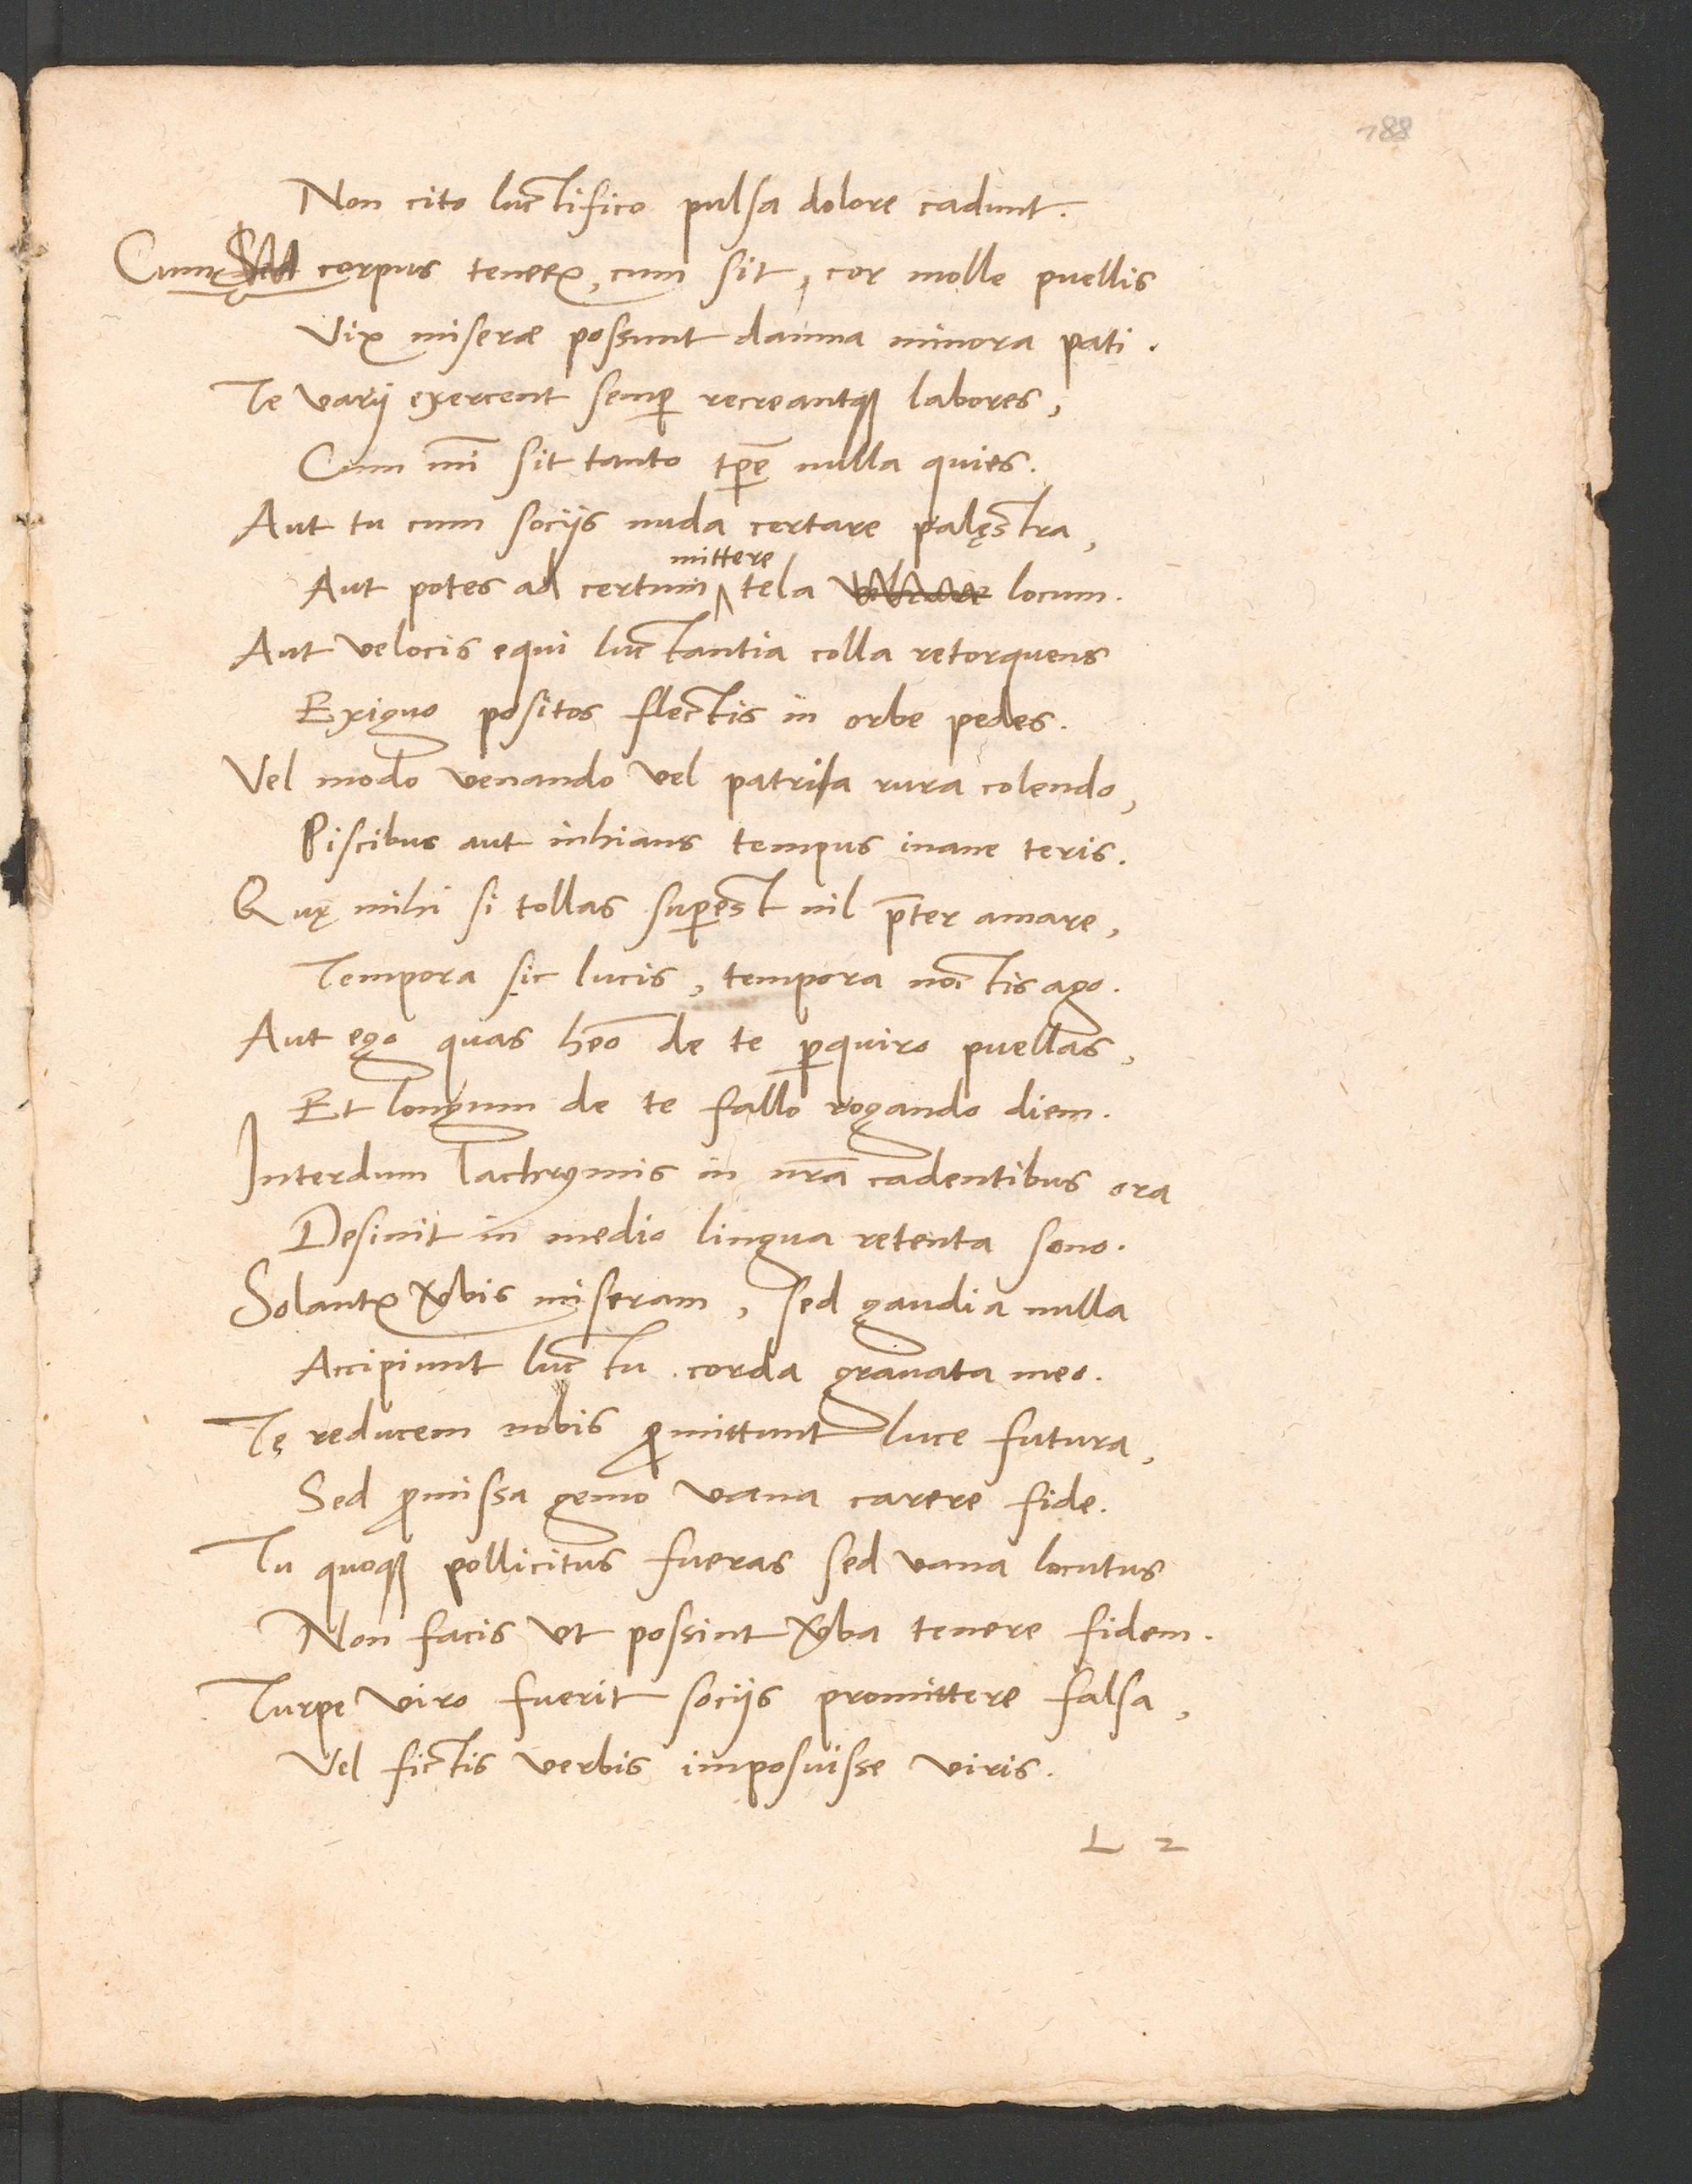 188
Non cito luctifico pulsa dolore cadunt.
Cum Sed corpus tenerū, cum sit, cor molle puellis
Vix miseræ possunt damna minora pati.
Te varij exercent semp̱ recreantqꝫ labores,
Cum mī sit tanto tp̱ē nulla quies.
Aut tu cum socijs nuda certare palęstra,
mittere
Aut potes ad certum ‸ tela locum.
Aut velocis equi luctantia colla retorquens
Exiguo positos flectis in orbe pedes.
Vel modo venando vel patria rura colendo,
Piscibus aut inhians tempus inane teris.
Quę mihi si tollas sup̱est nil p̄ter amare,
Tempora sic lucis, tempora noctis ago.
Aut ego quas hēo de te p̱quiro puellas,
Et longum de te fallo rogando diem.
Interdum lachrymis in nr̄a cadentibus ora
Desinit in medio lingua retenta sono.
Solantr̄ v̄bis miseram, sed gaudia nulla
Accipiunt luctu corda gravata meo.
Te reducem nobis ꝓmittunt luce futura,
Sed ꝓmissa gemo vana carere fide.
Tu quoqꝫ pollicitus fueras sed vana locutus
Non facis ut possint v̄ba tenere fidem.
Turpe viro fuerit socijs promittere falsa,
Vel fictis verbis imposuisse viris.
L 2